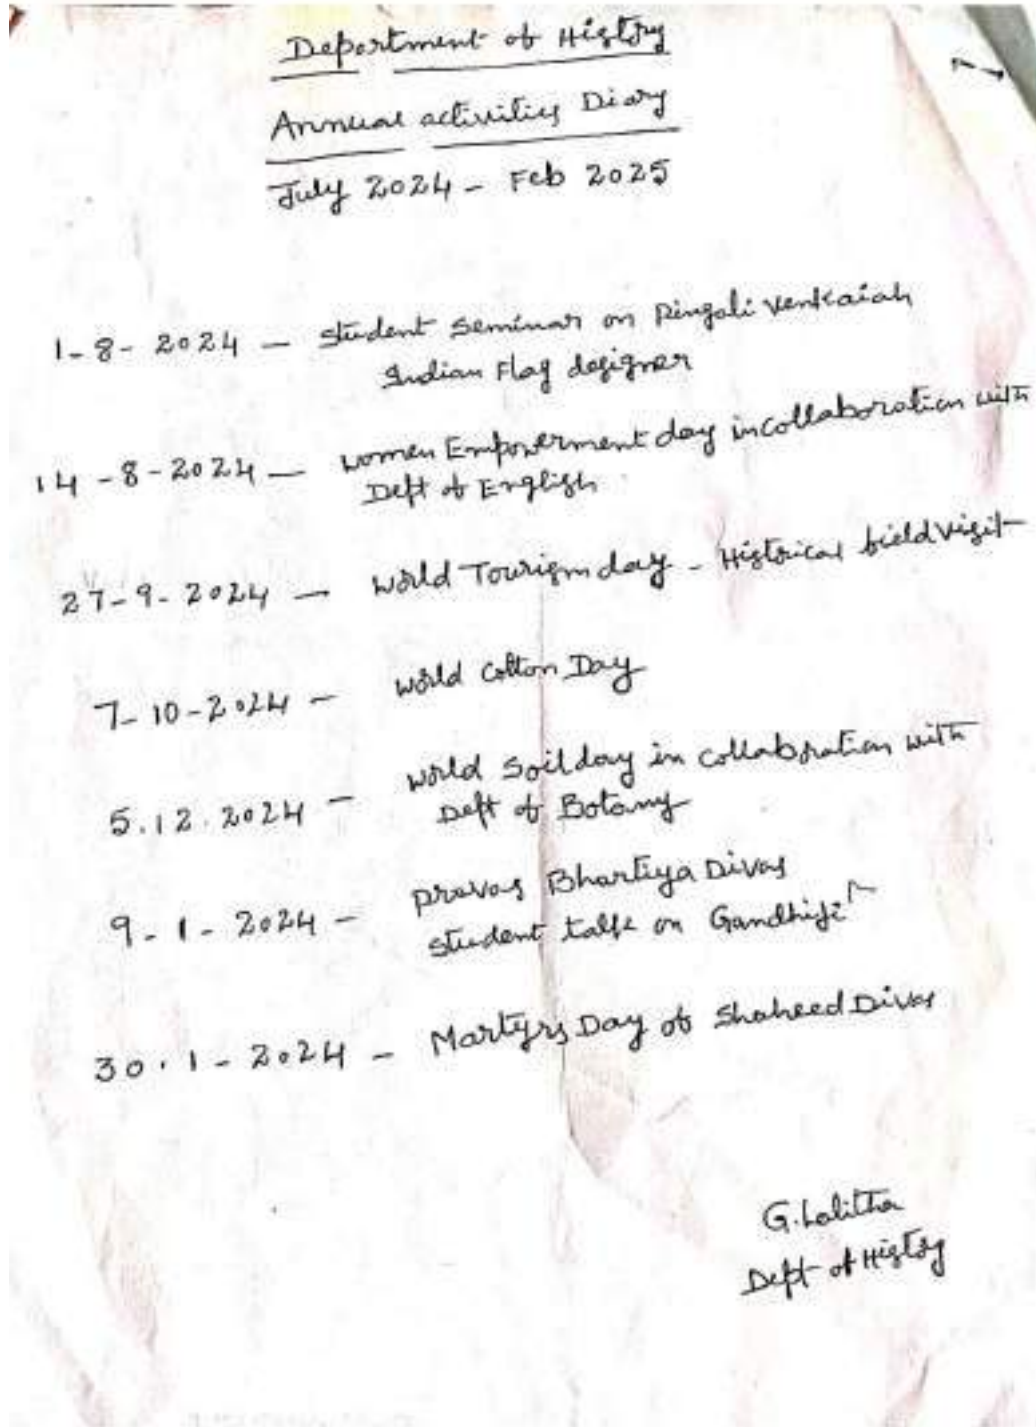 Department of History
Annual activities Diary
July 2024 - Feb 2025
1-8-2024 - Student Seminar on Pingali Venkaiah
Indian Flag designer
14-8-2024 - women Empowerment day in collaboration with
Dept of English
27-9-2024 - World Tourism day - Historical field visit
7-10-2024 - World Cotton Day
5.12.2024 - World Soil day in collaboration with
Dept of Botany
9-1-2024 - Pravas Bhartiya Divas
Student talk on Gandhiji
30.1-2024 - Martyrs Day of Shaheed Divas
G. Lalitha
Dept of History